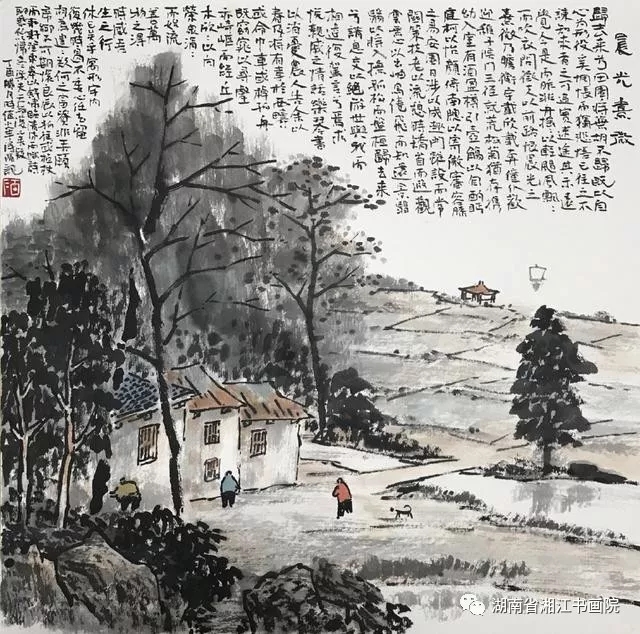 晨光熹微
歸去來兮田園將蕪胡不歸既以自
心為形役奚惆悵而獨悲悟已往之不
諫知來者之可追實迷途其未遠
覺今是而昨非舟摇摇以輕颺風飄飄
而吹衣問徵夫以前路恨晨光之
熹微乃瞻衡宇載欣載奔僮仆歡
迎稚子候門三徑就荒松菊猶存攜
幼入室有酒盈樽引壺觴以自酌眄
庭柯以怡顏倚南窗以寄傲審容膝
之易安園日涉以成趣門雖設而常
關策扶老以流憩時矯首而遐觀
雲無心以出岫鳥倦飛而知還景翳
翳以將入撫孤松而盤桓歸去來
兮請息交以絕游世與我而
相違復駕言兮焉求
悅親戚之情話樂琴書
以消憂農人告余以
春及將有事於西疇
或命巾車或棹孤舟
既窈窕以尋壑
亦崎嶇而經丘
木欣欣以向
榮泉涓涓
而始流
善萬
物之得
時感吾
生之行
休已矣乎寓形宇内
復幾時曷不委心任去留
胡為遑遑欲何之富貴非吾願
帝鄉不可期懷良辰以孤往或植杖
而耘耔登東皋以舒嘯臨清流而賦詩
聊乘化以歸盡樂夫天命復奚疑
丁酉
湖南省湘江书画院